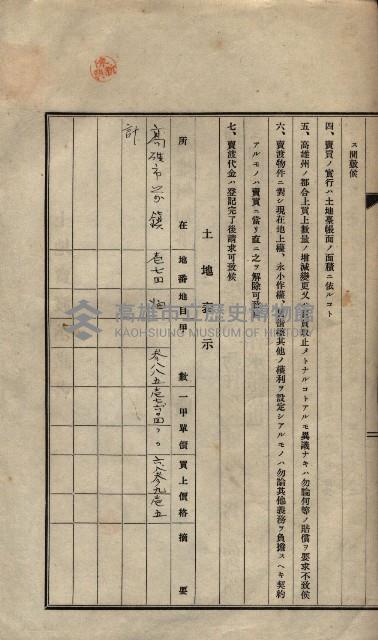 ス間敷候
四、賣買ノ實行ハ土地臺帳面ノ面積ニ依ルコト
五、高雄州ノ都合上買上數量ノ增減變更又ハ賣買取止メトナルコトアルモ異議ナキハ勿論何等ノ賠償ヲ要求不致候
六、賣渡物件ニ對シ現在地上權、永小作權、其他ノ權利ヲ設定シアルモノハ勿論其他義務ヲ負擔スヘキ契約
アルモノハ賣買ニ當リ直ニ之ヲ解除可致
七、賣渡代金ハ登記完了後請求可致候
土地表示
所在 地番 地目 甲數 一甲單價 買上價格 摘要
高雄市前鎮 壱七四
計
高雄市立歷史博物館
KAOHSIUNG MUSEUM OF HISTORY